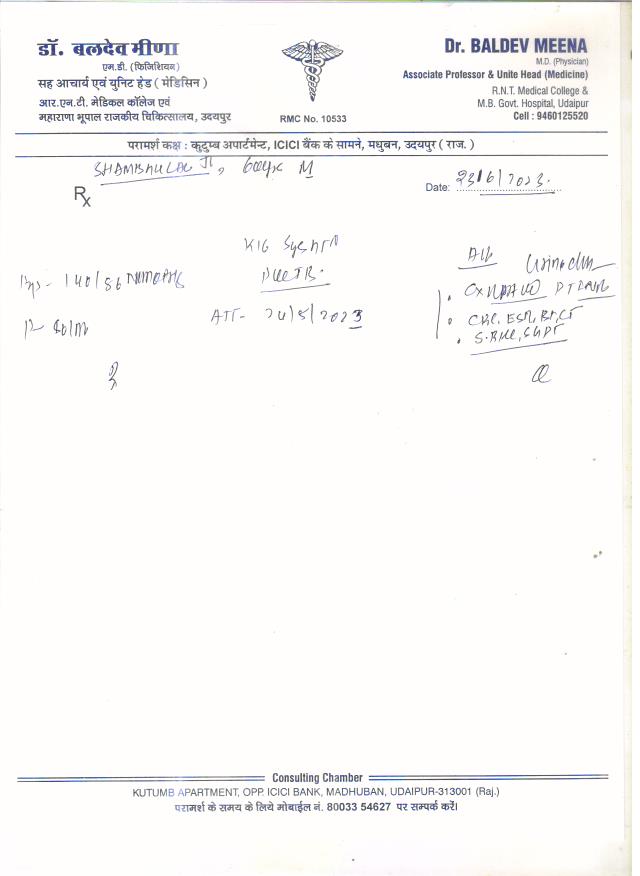 डॉ. बलदेव मीणा
एम.डी. (फिजिशियन)
सह आचार्य एवं युनिट हेड ( मेडिसिन )
आर.एन.टी. मेडिकल कॉलेज एवं
महाराणा भूपाल राजकीय चिकित्सालय, उदयपुर
RMC No. 10533
Dr. BALDEV MEENA
M.D. (Physician)
Associate Professor & Unite Head (Medicine)
R.N.T. Medical College &
M.B. Govt. Hospital, Udaipur
Cell : 9460125520
परामर्श कक्ष : कुटुम्ब अपार्टमेन्ट, ICICI बैंक के सामने, मधुबन, उदयपुर ( राज. )
SHAMBHULAL JI, M
Rx
Date: 23/6/2023
K/C Sys HTN
140/86
ATT- 24/5/2023
CBC, ESR, BT, CT
Consulting Chamber
KUTUMB APARTMENT, OPP. ICICI BANK, MADHUBAN, UDAIPUR-313001 (Raj.)
परामर्श के समय के लिये मोबाईल नं. 80033 54627 पर सम्पर्क करें।